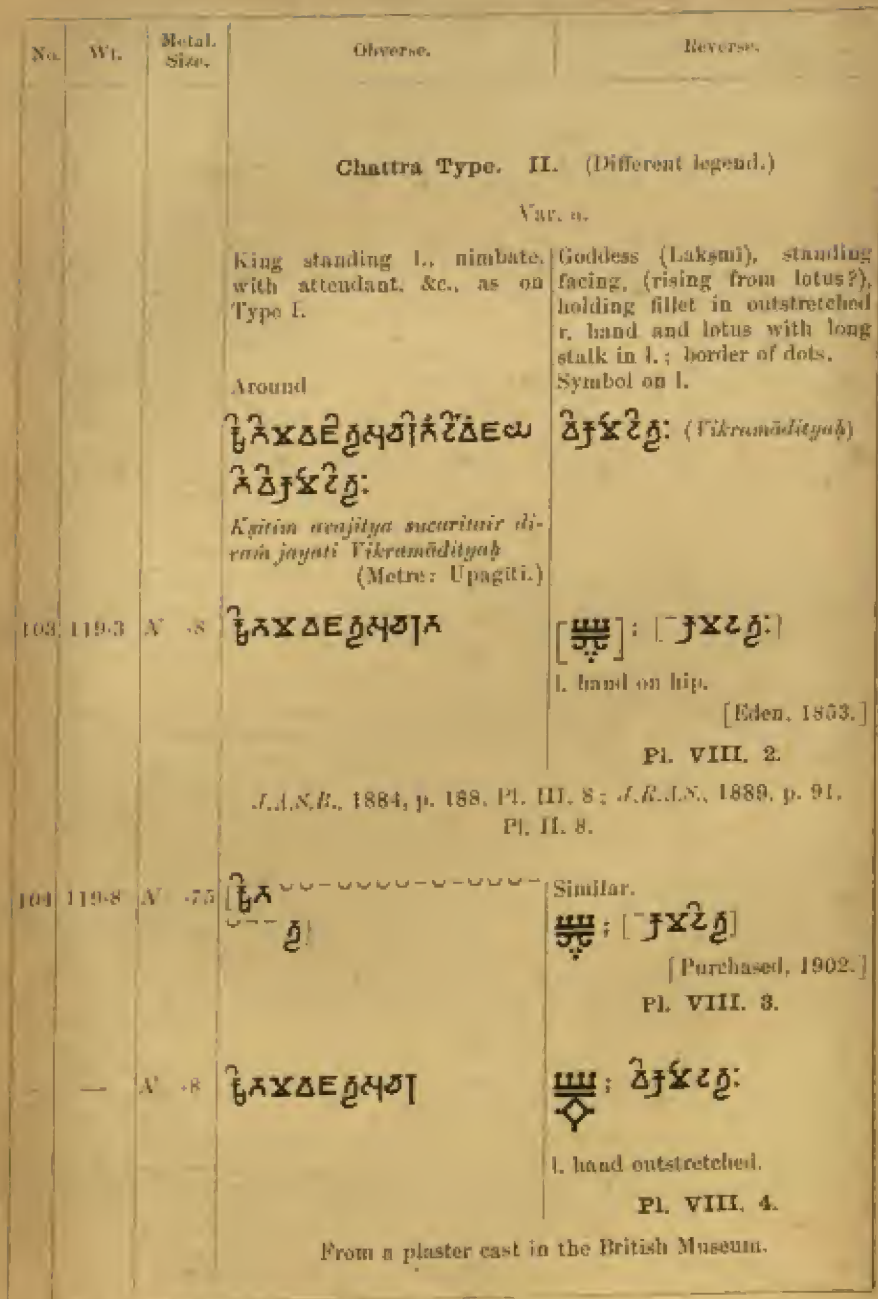 No. Wt. Metal. Size. Obverse. Reverse.
Chattra Type. II. (Different legend.)
Var. α.
King standing l., nimbate, with attendant, &c., as on Type I.
Around
Kṣitim avajitya sucaritair di-
vaṁ jayati Vikramādityaḥ
(Metre: Upagīti.)
Goddess (Lakṣmī), standing
facing, (rising from lotus?),
holding fillet in outstretched
r. hand and lotus with long
stalk in l.; border of dots.
Symbol on l.
(Vikramādityaḥ)
103 119·3 N ·8
l. hand on hip.
[Eden, 1853.]
Pl. VIII. 2.
J.A.S.B., 1884, p. 188, Pl. III. 8; J.R.A.S., 1889, p. 91,
Pl. II. 8.
104 119·8 N ·75
Similar.
[Purchased, 1902.]
Pl. VIII. 3.
— — N ·8
l. hand outstretched.
Pl. VIII. 4.
From a plaster cast in the British Museum.